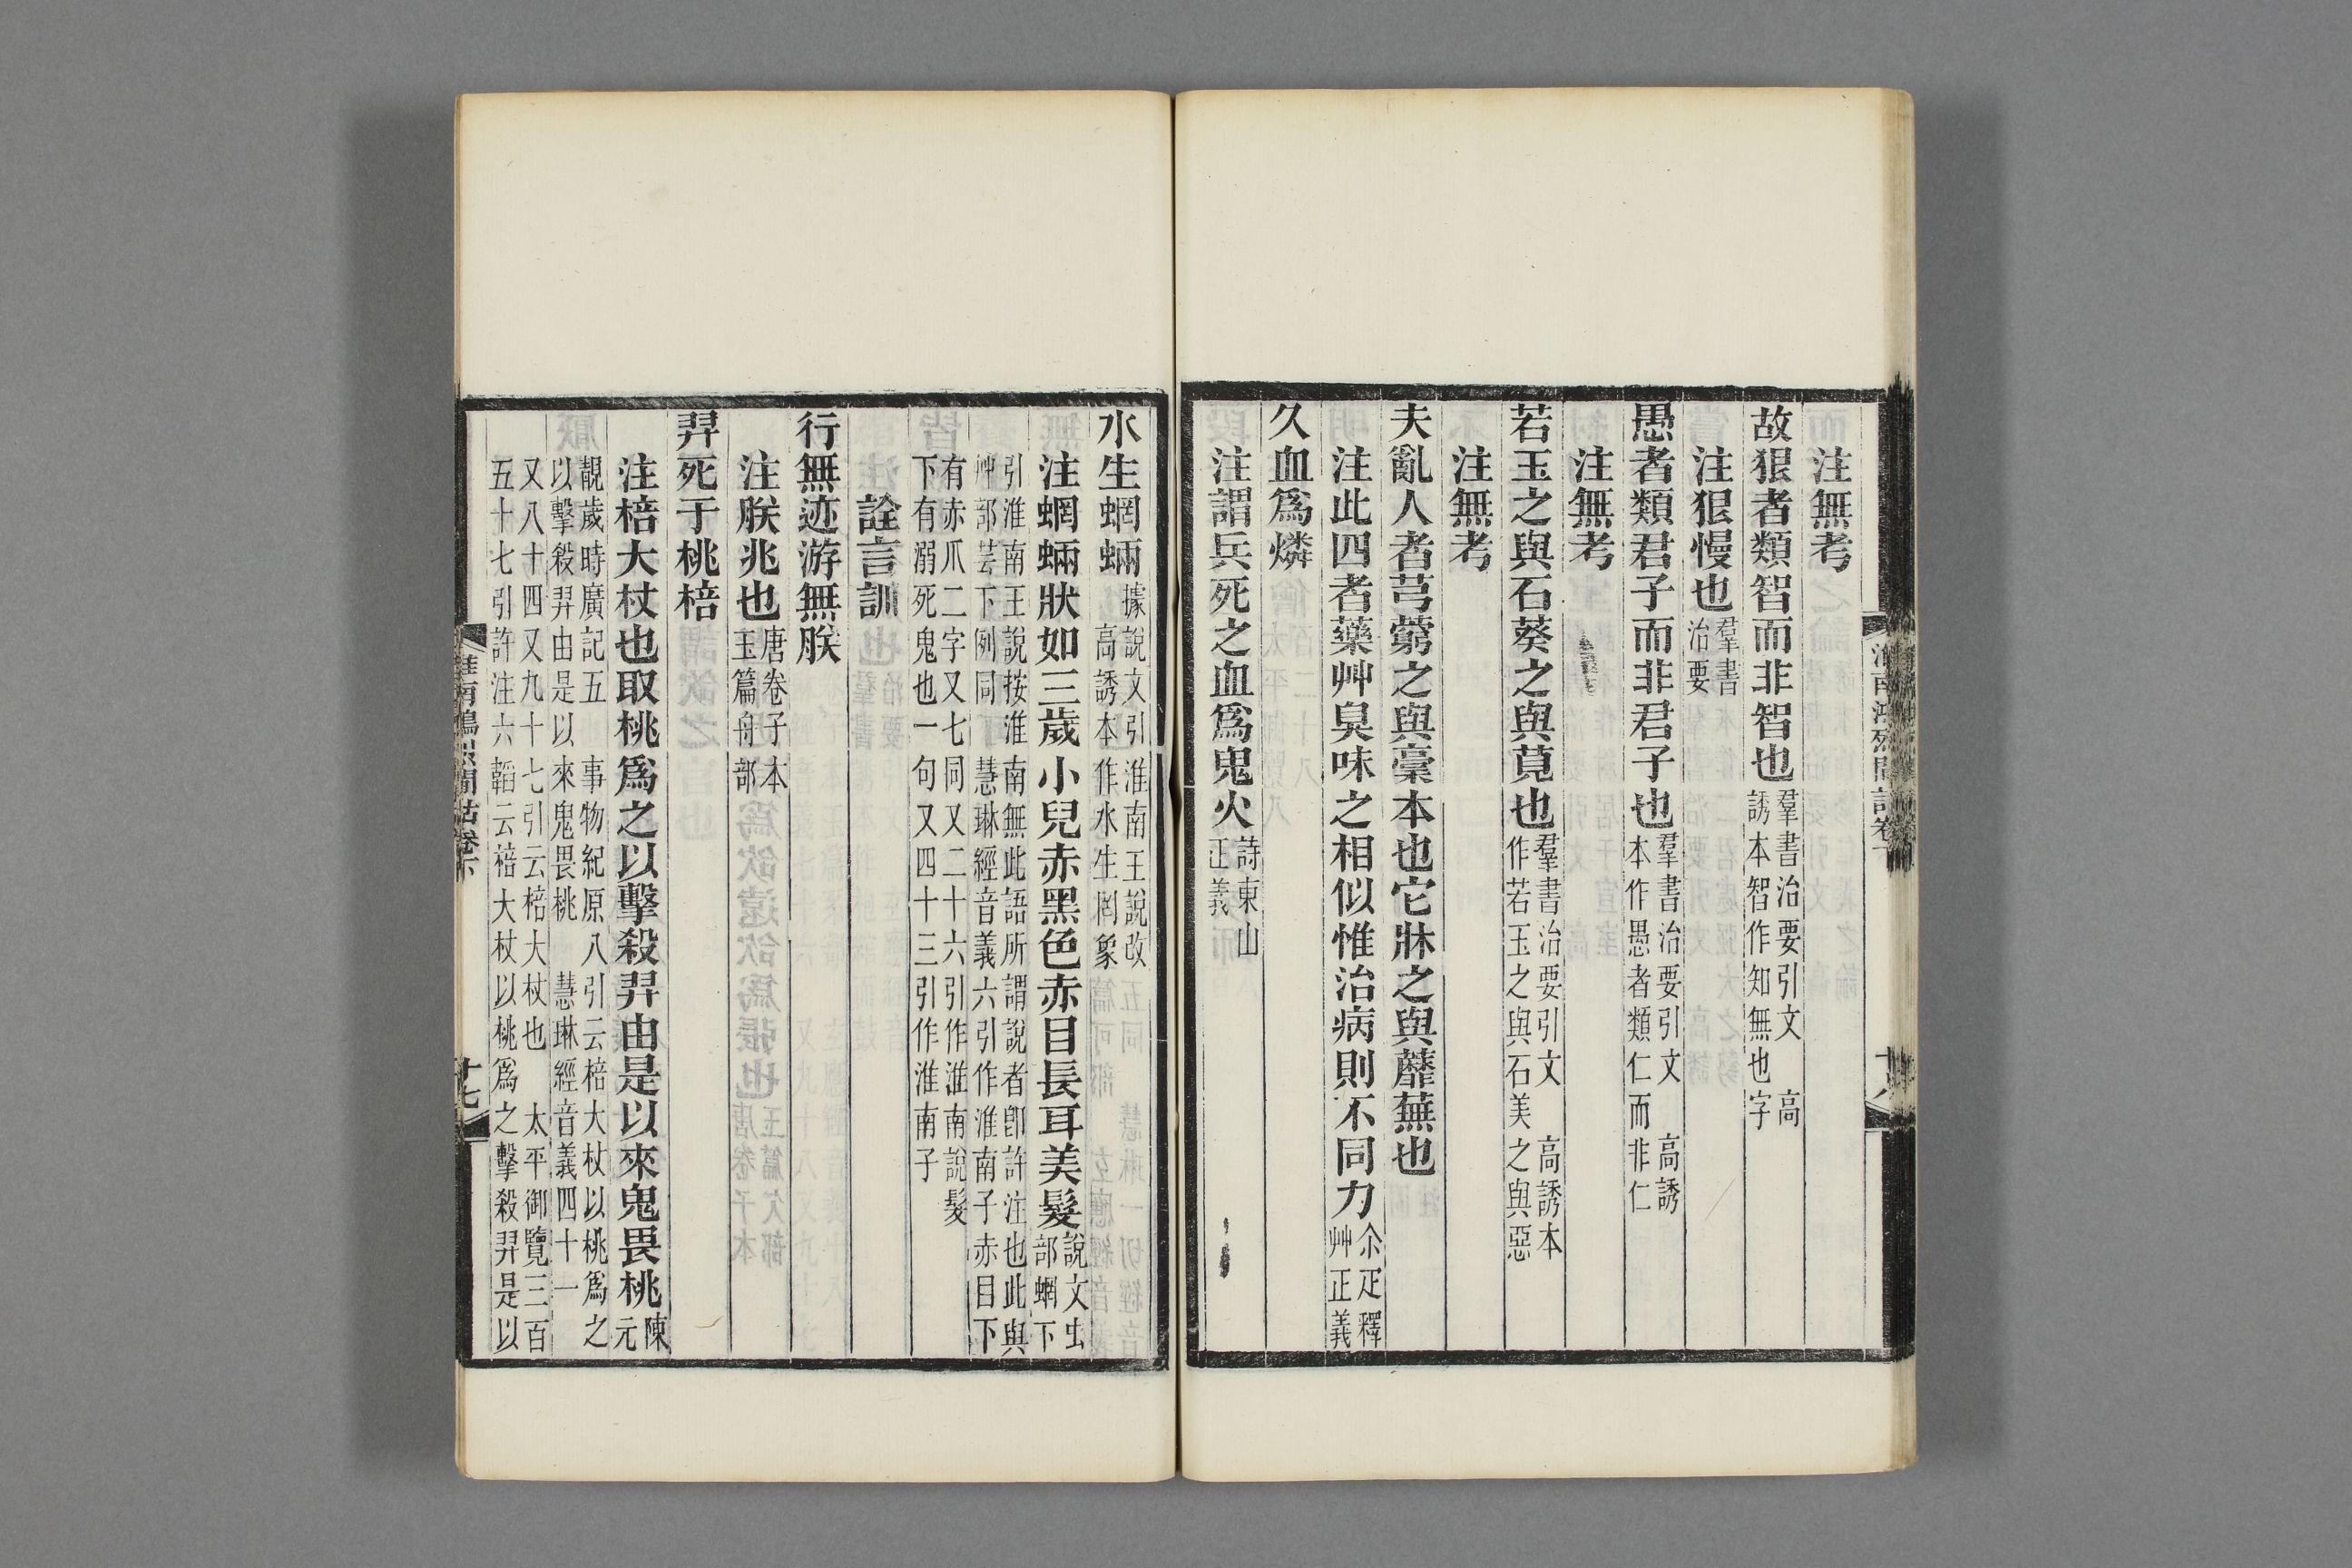 注無考
故狠者類智而非智也羣書治要引文　高
誘本智作知無也字
注狠慢也羣書
治要
愚者類君子而非君子也羣書治要引文　高誘
本作愚者類仁而非仁
注無考
若玉之與石葵之與莧也羣書治要引文　高誘本
作若玉之與石美之與惡
注無考
夫亂人者芎藭之與藁本也它牀之與蘼蕪也
注此四者藥艸臭味之相似惟治病則不同力尒疋釋
艸正義
久血爲燐
注謂兵死之血爲鬼火詩東山
正義
水生蝄蜽據說文引淮南王說改
高誘本作水生罔象
注蝄蜽狀如三歲小兒赤黑色赤目長耳美髮說文虫
部蝄下
引淮南王說按淮南無此語所謂說者卽許注也此與
艸部芸下例同　慧琳經音義六引作淮南子赤目下
有赤爪二字又七同又二十六引作淮南說髮
下有溺死鬼也一句又四十三引作淮南子
詮言訓
行無迹游無朕
注朕兆也唐卷子本
玉篇舟部
羿死于桃棓
注棓大杖也取桃爲之以擊殺羿由是以來鬼畏桃陳
元
靚歲時廣記五　事物紀原八引云棓大杖以桃爲之
以擊殺羿由是以來鬼畏桃　慧琳經音義四十一
又八十四又九十七引云棓大杖也　太平御覽三百
五十七引許注六韜云棓大杖以桃爲之擊殺羿是以